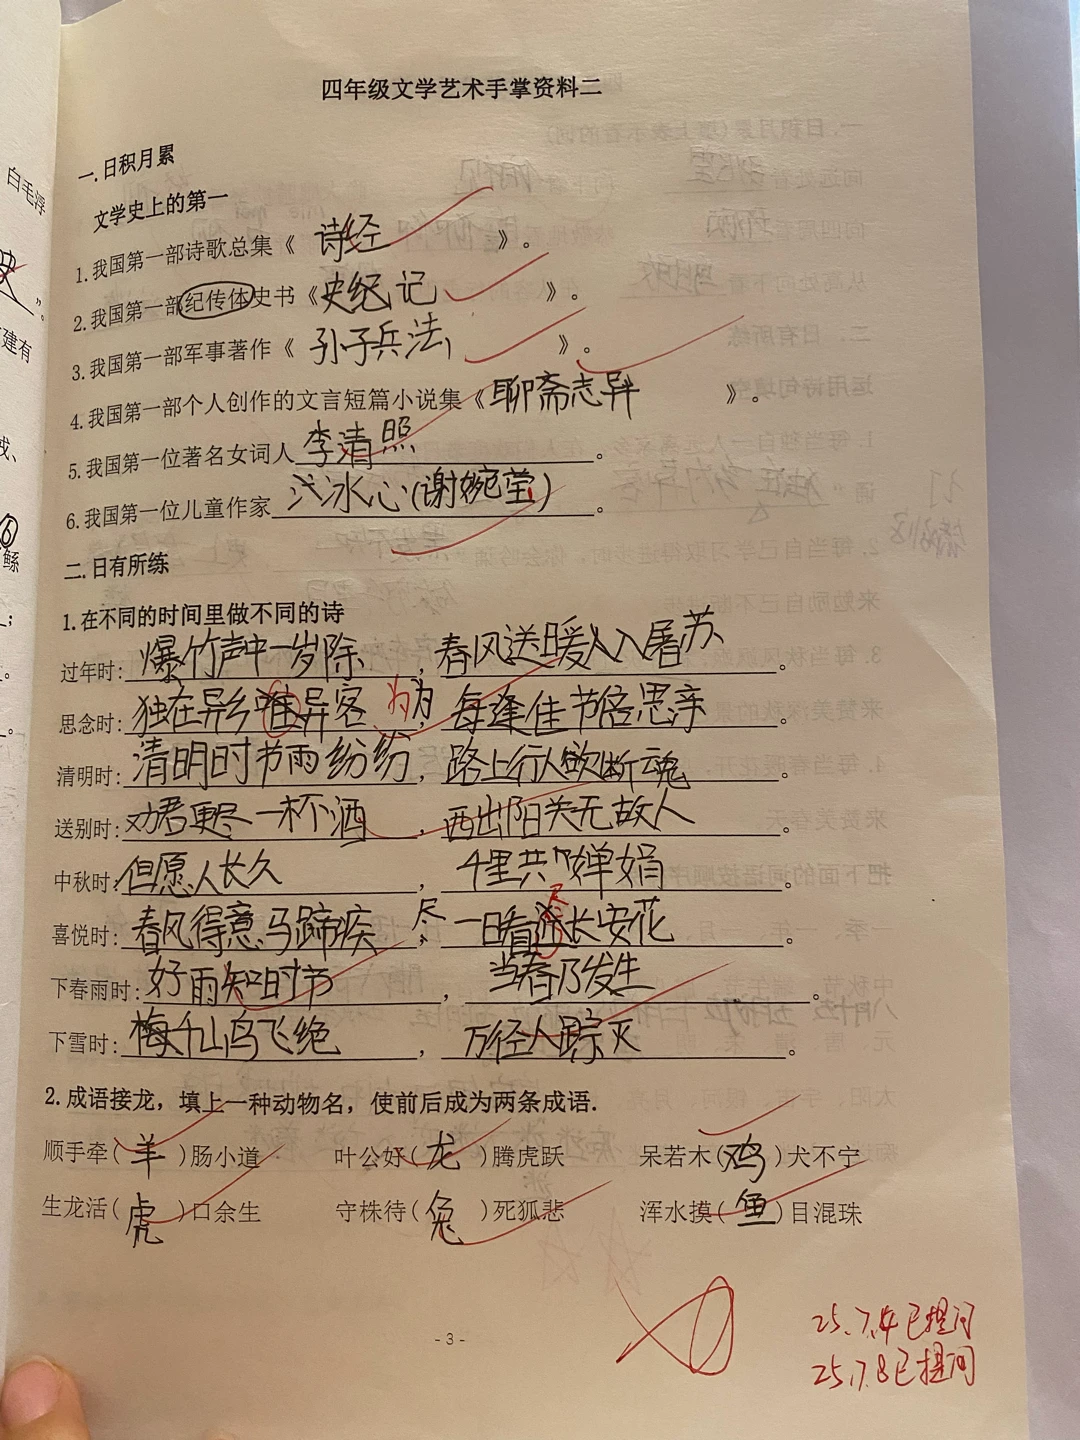 四年级文学艺术手掌资料二
一.日积月累
文学史上的第一
1.我国第一部诗歌总集《 诗经 》。
2.我国第一部纪传体史书《史纪记 》。
3.我国第一部军事著作《 孙子兵法 》。
4.我国第一部个人创作的文言短篇小说集《聊斋志异 》。
5.我国第一位著名女词人 李清照 。
6.我国第一位儿童作家 冰心(谢婉莹) 。
二.日有所练
1.在不同的时间里做不同的诗
过年时: 爆竹声中一岁除 , 春风送暖入屠苏 。
思念时: 独在异乡 异客 为为 , 每逢佳节倍思亲 。
清明时: 清明时节雨纷纷 , 路上行人欲断魂 。
送别时: 劝君更尽一杯酒 , 西出阳关无故人 。
中秋时: 但愿人长久 , 千里共婵娟 。
喜悦时: 春风得意马蹄疾 尽 , 一日看 尽 长安花 。
下春雨时: 好雨知时节 , 当春乃发生 。
下雪时: 千山鸟飞绝 , 万径人踪灭 。
2.成语接龙，填上一种动物名，使前后成为两条成语.
顺手牵( 羊 )肠小道 叶公好( 龙 )腾虎跃 呆若木(鸡)犬不宁
生龙活( 虎 )口余生 守株待( 兔 )死狐悲 浑水摸( 鱼 )目混珠
25.7.4已提问
25.7.8已提问
- 3 -
白毛浮
建有
戏、
⑥
鲧